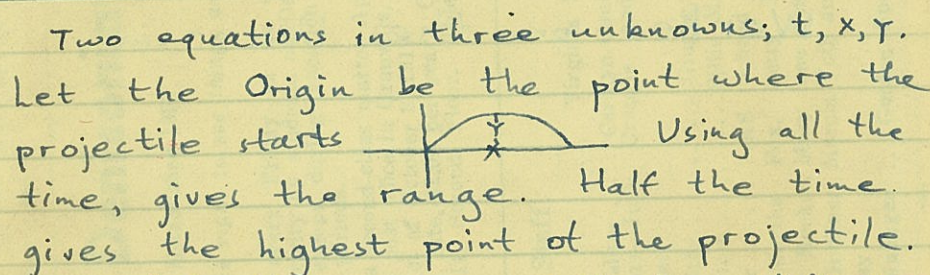 Two equations in three unknowns; t, x, Y.
Let the Origin be the point where the
projectile starts Y X Using all the
time, gives the range. Half the time.
gives the highest point of the projectile.